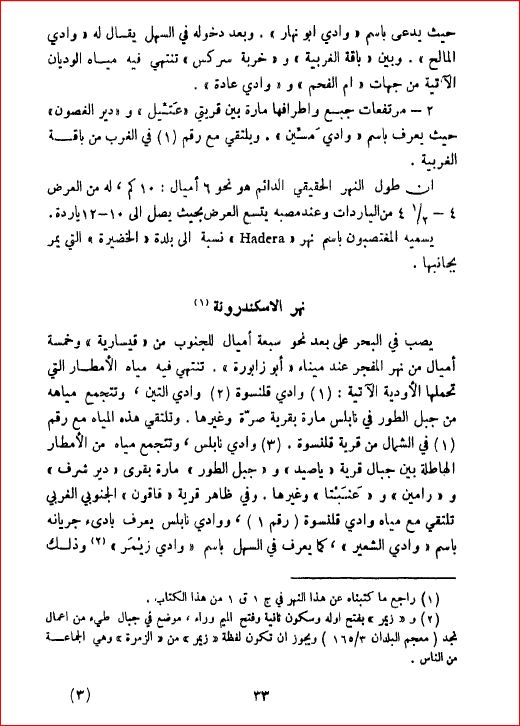 حيث يدعى باسم « وادي ابو نهار » . وبعد دخوله في السهل يقال له « وادي
المالح » . وبين « باقة الغربية » و « خربة سركس » تنتهي فيه مياه الوديان
الآتية من جهات « ام الفحم » و « وادي عادة » .
٢ – مرتفعات جبع واطرافها مارة بين قريتي « عَتّيل » و « دير الغصون »
حيث يعرف باسم « وادي مَسّين » . ويلتقي مع رقم (١) في الغرب من باقة
الغربية .
ان طول النهر الحقيقي الدائم هو نحو ٦ أميال : ١٠ كم ، له من العرض
٤ – ١/٢ ٤ من الياردات وعند مصبه يتسع العرض بحيث يصل الى ١٠–١٢ ياردة .
يسميه المغتصبون باسم نهر « Hadera » نسبة الى بلدة « الخضيرة » التي يمر
بجانبها .
نهر الاسكندرونة (١)
يصب في البحر على بعد نحو سبعة أميال للجنوب من « قيسارية » وخمسة
أميال من نهر المفجر عند ميناء « أبو زابورة » . تنتهي فيه مياه الأمطار التي
تحملها الأودية الآتية : (١) وادي قلنسوة (٢) وادي التين ، وتتجمع مياهه
من جبل الطور في نابلس مارة بقرية صرّة وغيرها . وتلتقي هذه المياه مع رقم
(١) في الشمال من قرية قلنسوة . (٣) وادي نابلس ، وتتجمع مياه من الأمطار
الهاطلة بين جبال قرية « ياصيد » و « جبل الطور » مارة بقرى « دير شرف »
و « رامين » و « عنَبْتا » وغيرها . وفي ظاهر قرية « قاقون » الجنوبي الغربي
تلتقي مع مياه وادي قلنسوة ( رقم ١ ) ، ووادي نابلس يعرف بادىء جريانه
باسم « وادي الشعير » ، كما يعرف في السهل باسم « وادي زيْمَر » (٢) وذلك
(١) راجع ما كتبناه عن هذا النهر في ج ١ ق ١ من هذا الكتاب .
(٢) و « زيمر » بفتح اوله وسكون ثانية وفتح الميم وراء ، موضع في جبال طيء من اعمال
نجد ( معجم البلدان ١٦٥/٣ ) ويجوز ان تكون لفظة « زيمر » من « الزمرة » وهي الجماعة
من الناس .
٣٣
(٣)